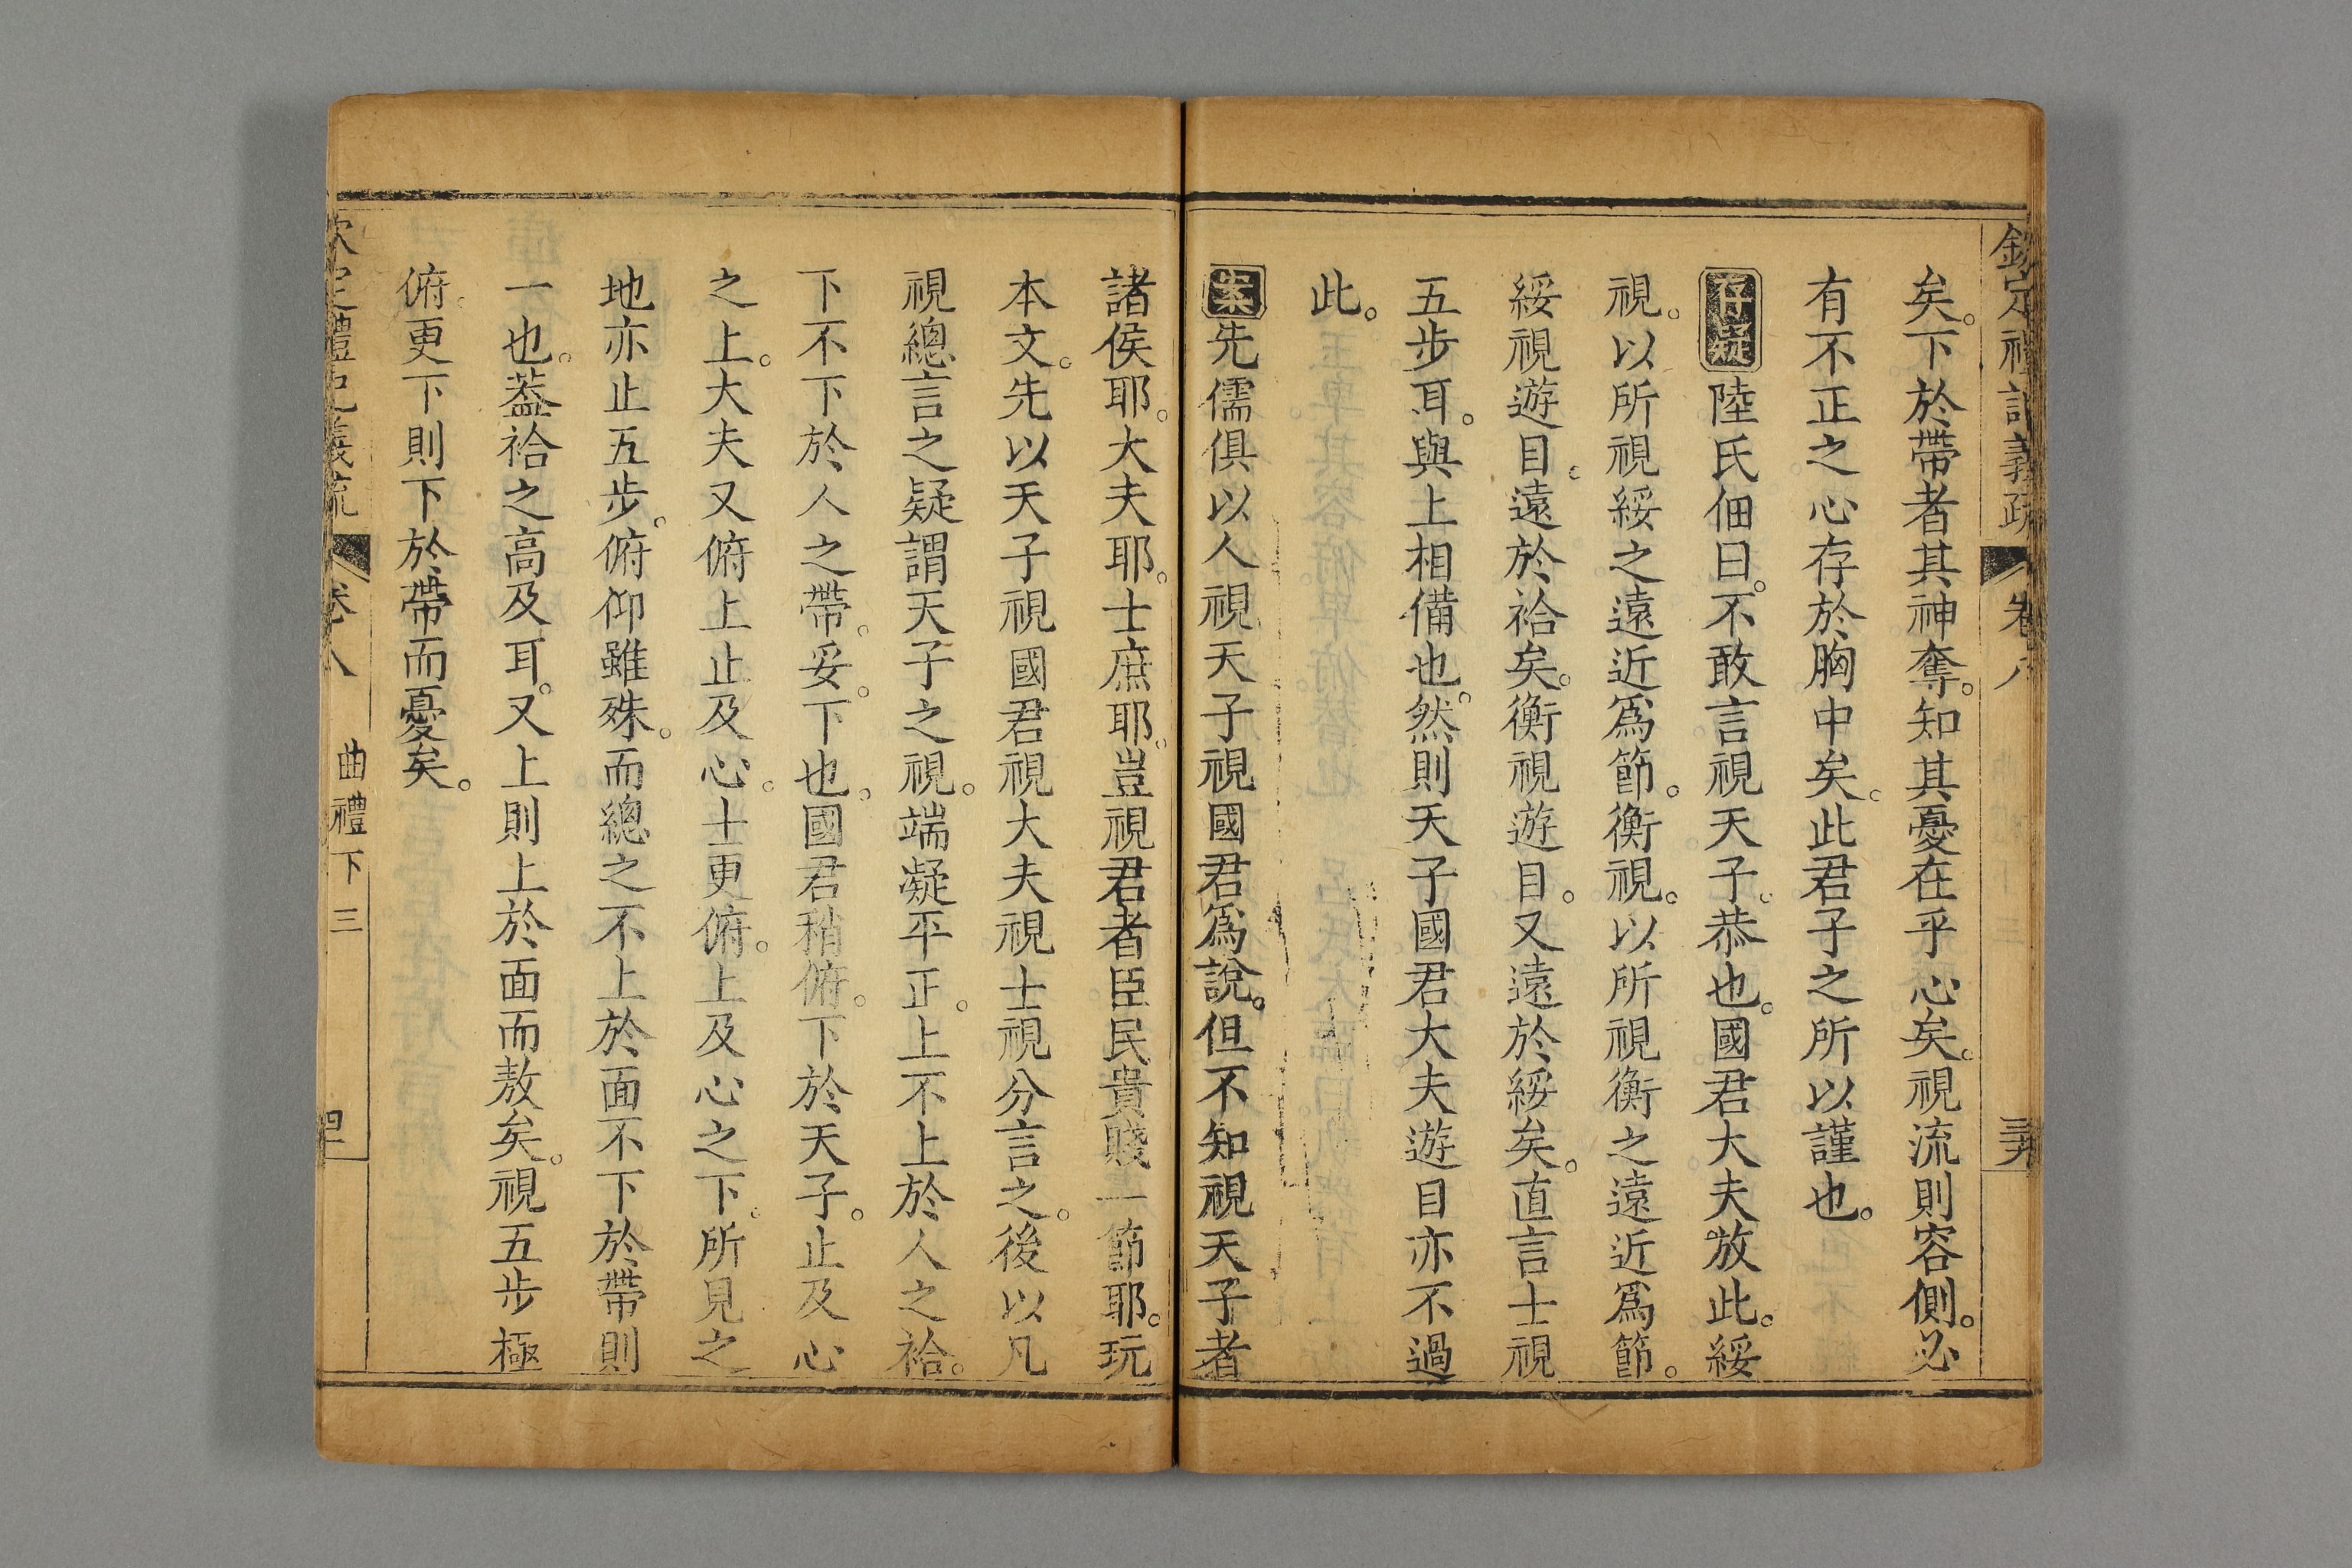 欽定禮記義疏 卷八 三九
矣。下於帶者其神奪。知其憂在乎心矣。視流則容側。必
有不正之心存於胸中矣。此君子之所以謹也。
存疑陸氏佃曰。不敢言視天子。恭也。國君大夫放此。綏
視。以所視綏之遠近爲節。衡視。以所視衡之遠近爲節。
綏視遊目。遠於袷矣。衡視遊目。又遠於綏矣。直言士視
五步耳。與上相備也。然則天子國君大夫遊目亦不過
此。
案先儒俱以人視天子視國君爲說。但不知視天子者
諸侯耶。大夫耶。士庶耶。豈視君者臣民貴賤一節耶。玩
本文。先以天子視國君視大夫視士視分言之。後以凡
視總言之疑謂天子之視。端凝平正。上不上於人之袷。
下不下於人之帶。妥下也。國君稍俯。下於天子。止及心
之上。大夫又俯上止及心。士更俯。上及心之下。所見之
地亦止五步。俯仰雖殊。而總之不上於面不下於帶則
一也。葢袷之高及耳。又上則上於面而敖矣。視五步極
俯。更下則下於帶而憂矣。
欽定禮記義疏 卷八 曲禮下三